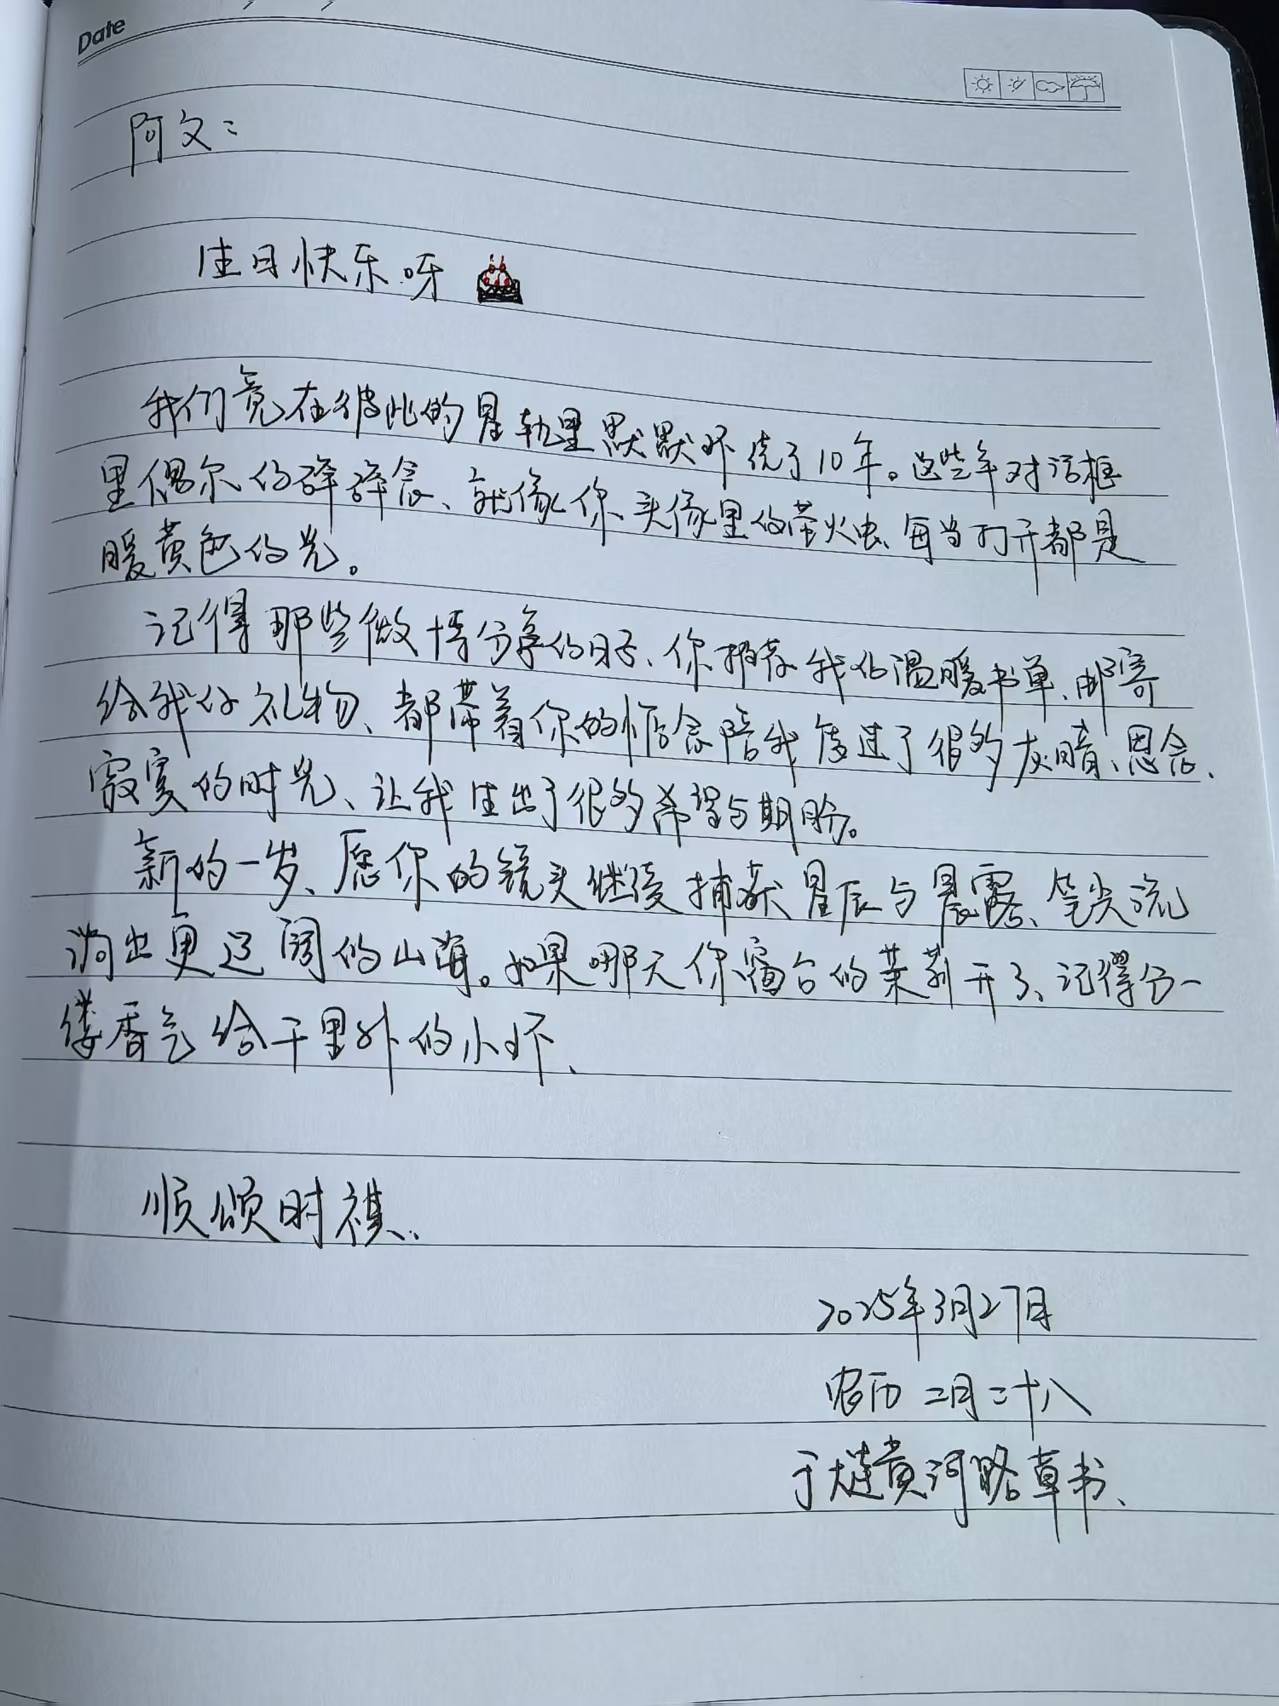 Date
阿文：
生日快乐呀
我们竟在彼此的星轨里默默环绕了10年。这些年对话框
里偶尔的碎碎念、就像你头像里的萤火虫、每当打开都是
暖黄色的光。
记得那些微博分享的日子、你推荐我的温暖书单、邮寄
给我的礼物、都带着你的惦念陪我度过了很多灰暗、思念、
寂寞的时光、让我生出了很多希望与期盼。
新的一岁、愿你的镜头继续捕获星辰与晨露、笔尖流
淌出更辽阔的山海。如果哪天你窗台的茉莉开了、记得分一
缕香气给千里外的小环、
顺颂时祺、
2025年3月27日
农历二月二十八
于大连黄河路草书、